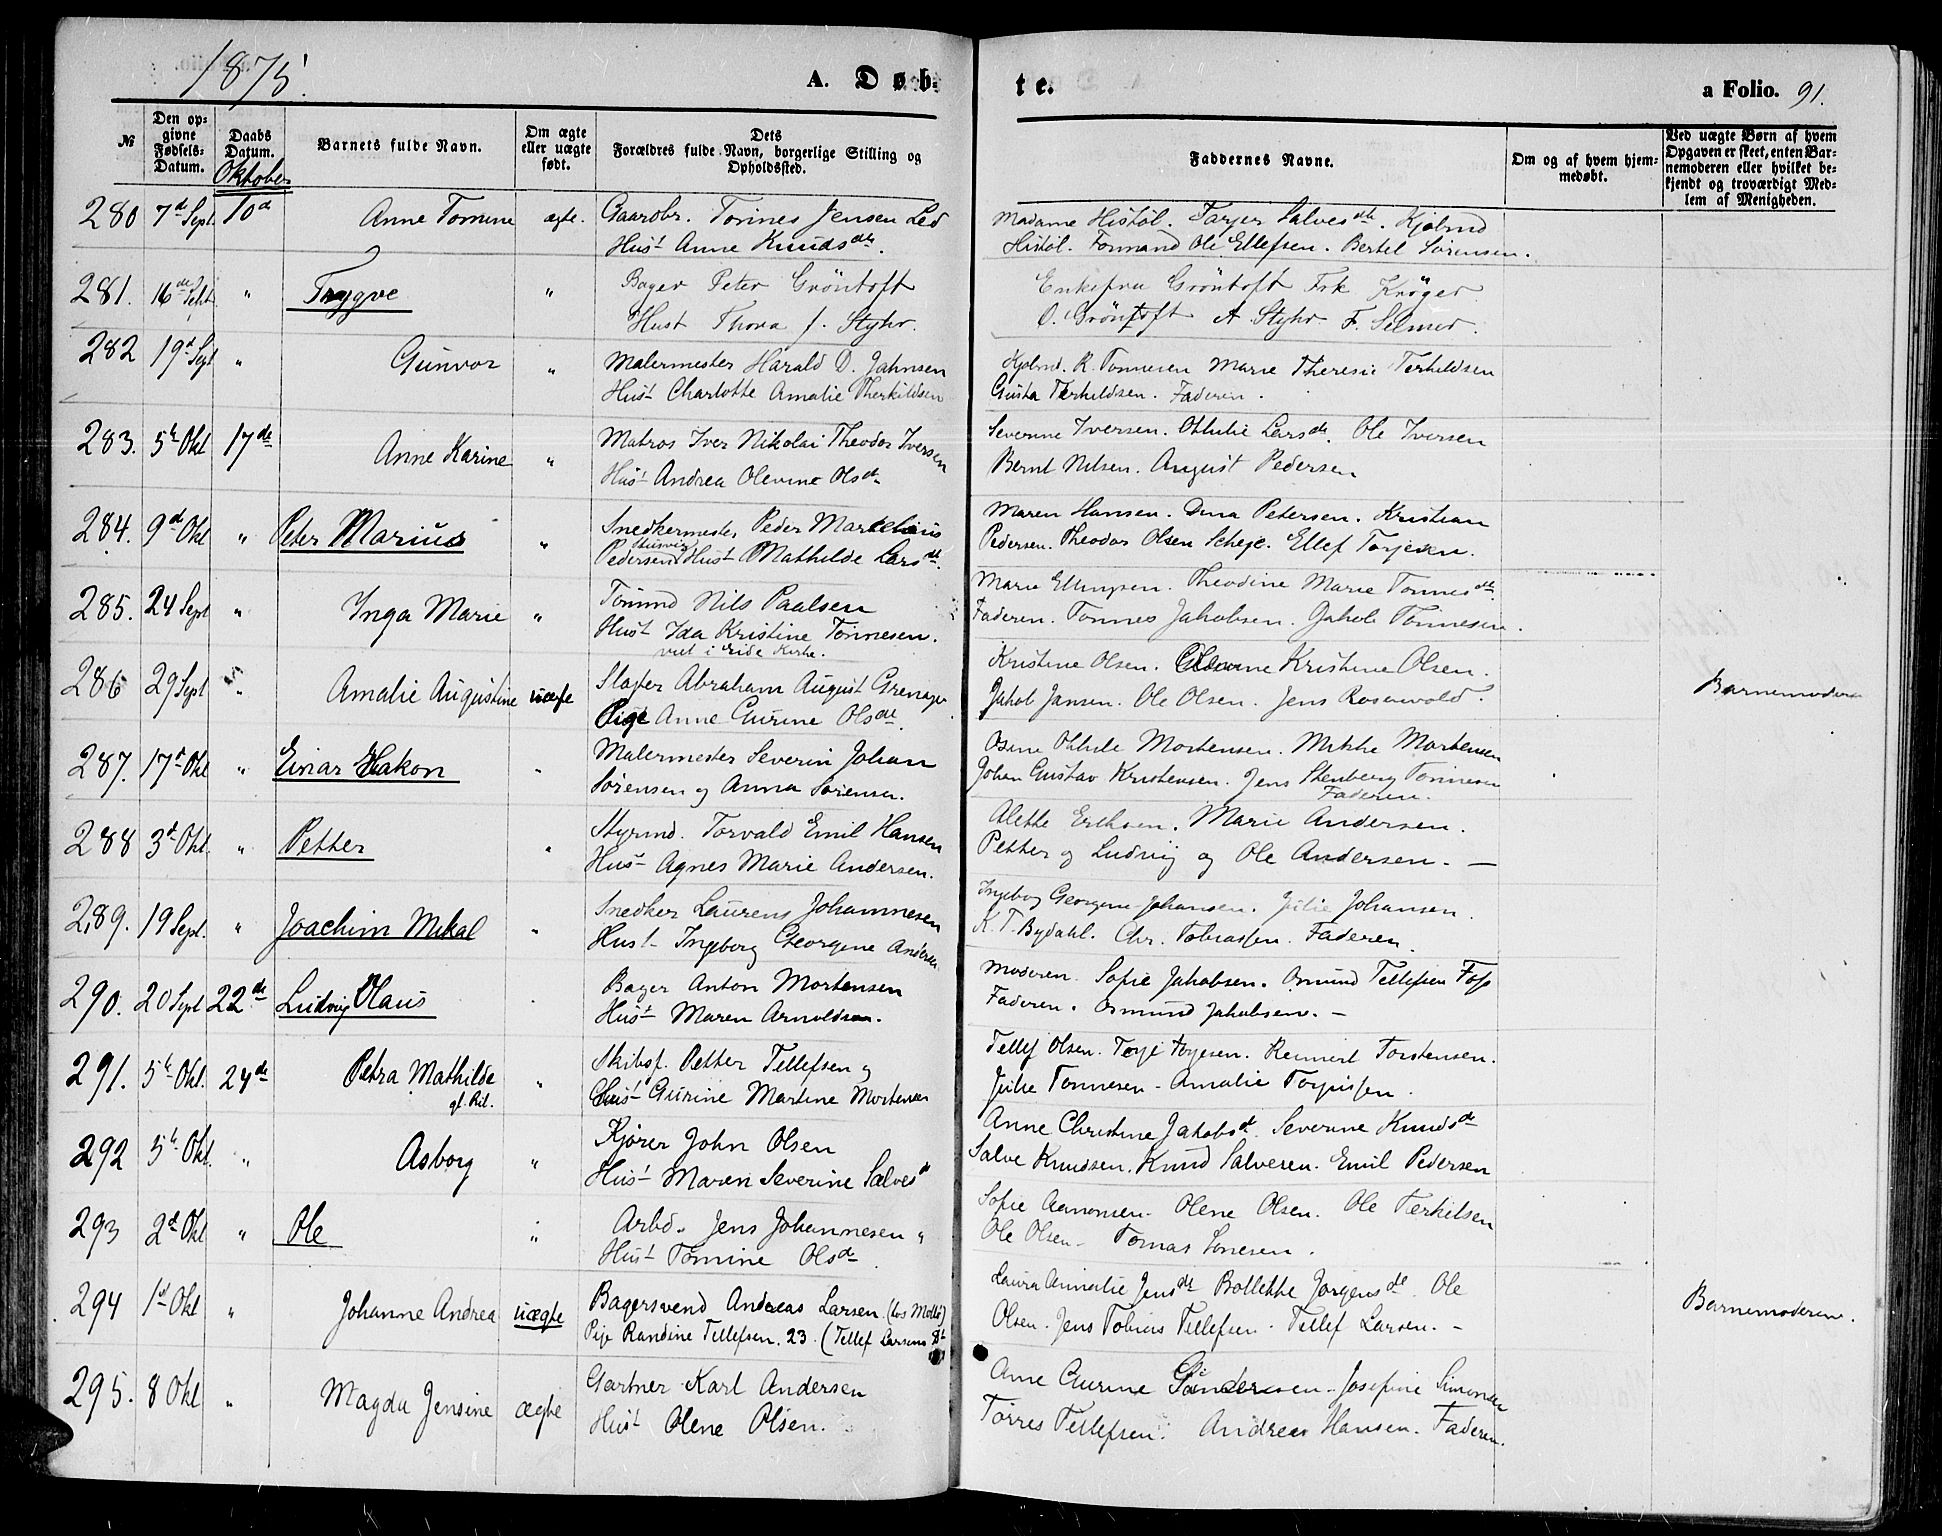 1875.
A. Døb-
te.
a Folio. 91.
№
Den opgivne Fødsels-Datum.
Daabs Datum.
Barnets fulde Navn.
Om ægte eller uægte født.
Dets Forældres fulde Navn, borgerlige Stilling og Opholdssted.
Faddernes Navne.
Om og af hvem hjemmedøbt.
Ved uægte Børn af hvem Opgaven er skeet, enten Barnemoderen eller hvilket bekjendt og troværdigt Medlem af Menigheden.
Oktober
280 7d Sept. 10d Anne Tomine ægte. Tønnes Jensen Led Madame Histøl. Salvesdtr. Kjøbmd
Hust Anne Knudsdtr. Histøl. Formand Ole Ellefsen. Bertel Sørensen.
281. 16de Sept. " Trygve " Bager Peter Grøntoft Enkefru Grøntoft Frk Krøger
Hust Thora f. Styhr. O. Grøntoft A Styhr. F. Selmer.
282 19d Sept " Gunvor " Malermester Harald D. Jahnsen Kjøbmd. R. Tønnesen Marie Theresie Terkildsen
Hust Charlotte Amalie Therkildsen Gusta Terkildsen. Faderen.
283. 5t Okt 17de Anne Karine " Matros Iver Nikolai Theodor Iversen Severine Iversen. Othilie Larsdt. Ole Iversen
Hust Andrea Olevine Olsdt. Bernt Nilsen. August Pedersen
284. 9d Okt " Peter Marius " Snedkermester Peder Martelius Maren Hansen. Dina Petersen. Kristian
Pedersen Hust Mathilde Larsdt. Pedersen. Theodor Olsen Scheje. Ellef Torjesen.
285. 24 Sept " Inga Marie " Tømmd Nils Paalsen Marie Ellingsen. Theodine Marie Tønnesdt.
Hust Ida Kristine Tønnesen. Faderen. Tønnes Jakobsen. Jakob Tønnesen.
viet i Eide Kirke.
286 29 Sept " Amalie Augustine uægte Slagter Abraham August Grenager Kristine Olsen. Kristine Olsen. Barnemoderen
Pige Anne Gurine Olsdt. Jakob Jansen. Ole Olsen. Jens Rosenvold.
287. 17d Okt " Einar Hakon " Malermester Severin Johan Osine Othilie Mortensen. Mikke Mortensen
Sørensen og Anna Sørensen. Johan Gustav Kristensen. Jens Stenberg Tønnesen
Faderen.
288 3d Okt. " Petter " Styrmd. Torvald Emil Hansen Alette Eriksen. Marie Andersen.
Hust Agnes Marie Andersen. Petter og Ludvig og Ole Andersen. —
289. 19 Sept. " Joachim Mikal " Snedker Laurens Johannesen Ingeborg Georgine Johansen. Julie Johansen.
Hust Ingeborg Georgine Andersen K. T. Bydahl. Chr. Tobiassen. Faderen.
290. 20 Sept 22de Ludvig Olaus Bager Anton Mortensen Moderen. Sofie Jakobsen. Osmund Tellefsen Foss
Hust Maren Arnoldsen. Faderen. Osmund Jakobsen. —
291. 5t Okt. 24de Petra Mathilde " Skibsf. Petter Tellefsen og Tellef Olsen. Terje Terjesen. Reinert Torstensen.
Hust Gurine Martine Mortensen Julie Tønnesen - Amalie Torjussen.
292 5t Okt. " Asborg " Kjører John Olsen Anne Christine Jakobsdt. Severine Knudsdt
Hust Maren Severine Salvesdt Salve Knudsen. Knud Salvesen. Emil Pedersen
293 2d Okt " Ole " Arbd. Jens Johannesen Sofie Aanonsen. Olene Olsen. Ole Terkelsen
Hust Tomine Olsdt Ole Olsen - Tomas Sørensen.
294 1st Okt " Johanne Andrea uægte Bagersvend Andreas Larsen. (hos Møllé) Laura Amalie Jensdt Bollette Jørgensdt. Ole Barnemoderen.
Pige Randine Tellefsen. 23. (Tellef Larsens Dt Olsen. Jens Tobias Tellefsen. Tellef Larsen. —
295. 8 Okt " Magda Jensine ægte Gartner Karl Andersen Ane Gurine Gundersen. Josefine Simonsen
Hust Olene Olsen. Tørres Tellefsen. Andreas Hansen. Faderen.